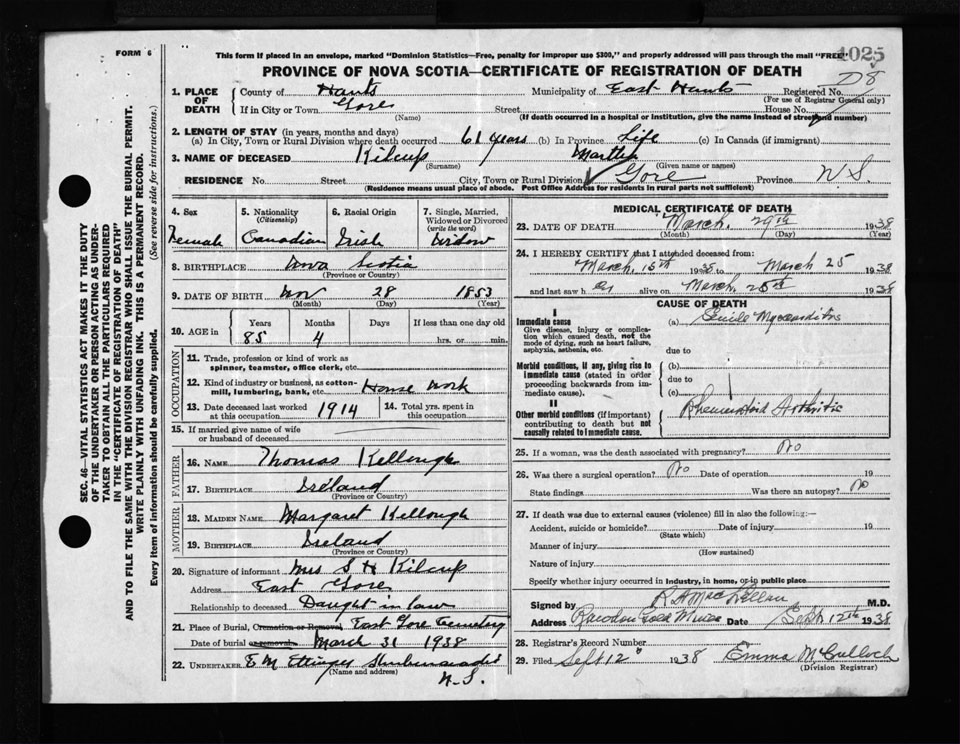 FORM 6
This form if placed in an envelope, marked "Dominion Statistics—Free, penalty for improper use $300," and properly addressed will pass through the mail "FREE"
1025
PROVINCE OF NOVA SCOTIA—CERTIFICATE OF REGISTRATION OF DEATH
D8
1. PLACE OF DEATH
County of Hants Municipality of East Hants Registered No.
(For use of Registrar General only)
If in City or Town Gore Street House No.
(Name) (If death occurred in a hospital or institution, give the name instead of street and number)
2. LENGTH OF STAY (in years, months and days)
(a) In City, Town or Rural Division where death occurred 61 years (b) In Province Life (c) In Canada (if immigrant)
3. NAME OF DECEASED Kilcup Martha
(Surname) (Given name or names)
RESIDENCE No. Street City, Town or Rural Division Gore Province N S.
(Residence means usual place of abode. Post Office Address for residents in rural parts not sufficient)
4. Sex 5. Nationality (Citizenship) 6. Racial Origin 7. Single, Married, Widowed or Divorced (write the word)
Female Canadian Irish Widow
8. BIRTHPLACE Nova Scotia
(Province or Country)
9. DATE OF BIRTH Nov 28 1853
(Month) (Day) (Year)
10. AGE in Years Months Days If less than one day old
85 4 hrs. or min.
OCCUPATION
11. Trade, profession or kind of work as spinner, teamster, office clerk, etc.
12. Kind of industry or business, as cotton-mill, lumbering, bank, etc. House work
13. Date deceased last worked at this occupation 1914 14. Total yrs. spent in this occupation
15. If married give name of wife or husband of deceased
FATHER
16. NAME Thomas Kellough
17. BIRTHPLACE Ireland
(Province or Country)
MOTHER
18. MAIDEN NAME Margaret Kellough
19. BIRTHPLACE Ireland
(Province or Country)
20. Signature of informant Mrs S H Kilcup
Address East Gore
Relationship to deceased Daught in law
21. Place of Burial, Cremation or Removal East Gore Cemetery
Date of burial or removal March 31 1938
22. UNDERTAKER E M Ettinger Shubenacadie
(Name and address) N.S.
MEDICAL CERTIFICATE OF DEATH
23. DATE OF DEATH March 29th 1938
(Month) (Day) (Year)
24. I HEREBY CERTIFY that I attended deceased from:
March 15th 1938 to March 25 1938
and last saw her alive on March 25th 1938
CAUSE OF DEATH
I
Immediate cause
Give disease, injury or complication which caused death, not the mode of dying, such as heart failure, asphyxia, asthenia, etc.
(a) Senile Myocarditis
due to
Morbid conditions, if any, giving rise to immediate cause (stated in order proceeding backwards from immediate cause).
(b)
due to
(c)
II
Other morbid conditions (if important) contributing to death but not causally related to immediate cause.
Rheumatoid Arthritis
25. If a woman, was the death associated with pregnancy? No
26. Was there a surgical operation? No Date of operation 19
State findings Was there an autopsy? No
27. If death was due to external causes (violence) fill in also the following:—
Accident, suicide or homicide? Date of injury 19
(State which)
Manner of injury
(How sustained)
Nature of injury
Specify whether injury occurred in industry, in home, or in public place
Signed by R A MacLellan M.D.
Address Rawdon Gold Mines Date Sept. 12th 1938
28. Registrar's Record Number
29. Filed Sept 12 1938 Emma McCulloch
(Division Registrar)
SEC. 46—VITAL STATISTICS ACT MAKES IT THE DUTY
OF THE UNDERTAKER OR PERSON ACTING AS UNDER-
TAKER TO OBTAIN ALL THE PARTICULARS REQUIRED
IN THE "CERTIFICATE OF REGISTRATION OF DEATH"
AND TO FILE THE SAME WITH THE DIVISION REGISTRAR WHO SHALL ISSUE THE BURIAL PERMIT.
WRITE PLAINLY WITH UNFADING INK. THIS IS A PERMANENT RECORD.
Every item of information should be carefully supplied. (See reverse side for instructions.)